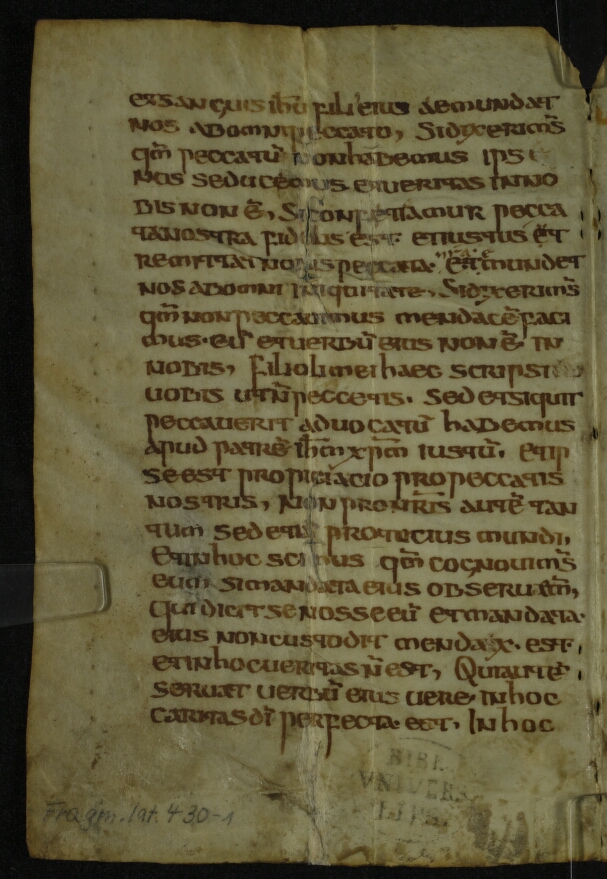 et sanguis ihu filii eius aemundat
nos ab omni peccato, Si dixerim's
qm̄ peccatū non habemus ipsi
nos seducemus et ueritas in no
bis non ē, Si confetiamur pecca
ta nostra fidelis est et iustus et
remittat nobis peccata et emundet
nos ab omni iniquitate, Si dixerim's
qm̄ non peccauimus mendacē faci
mus eū et uerbū eius non ē in
nobis, filioli mei haec scripsi
uobis ut n̄ peccetis. Sed et si quit
peccauerit aduocatū habemus
apud patrē ihm̄ xpm̄ iustū. et ip
se est propitiacio pro peccatis
nostris, Non pro nr̄is autē tan
tum sed etiā pro totius mundi,
Et in hoc scimus qm̄ cognouim's
eum si mandata eius obseruem',
Qui dicit se nosse eū et mandata
eius non custodit mendax est
et in hoc ueritas n̄ est, Qui autē
seruat uerbū eius uere in hoc
caritas dī perfecta est, In hoc
BIBL
VNIVERS
LIPS
Fragm. lat. 430-1